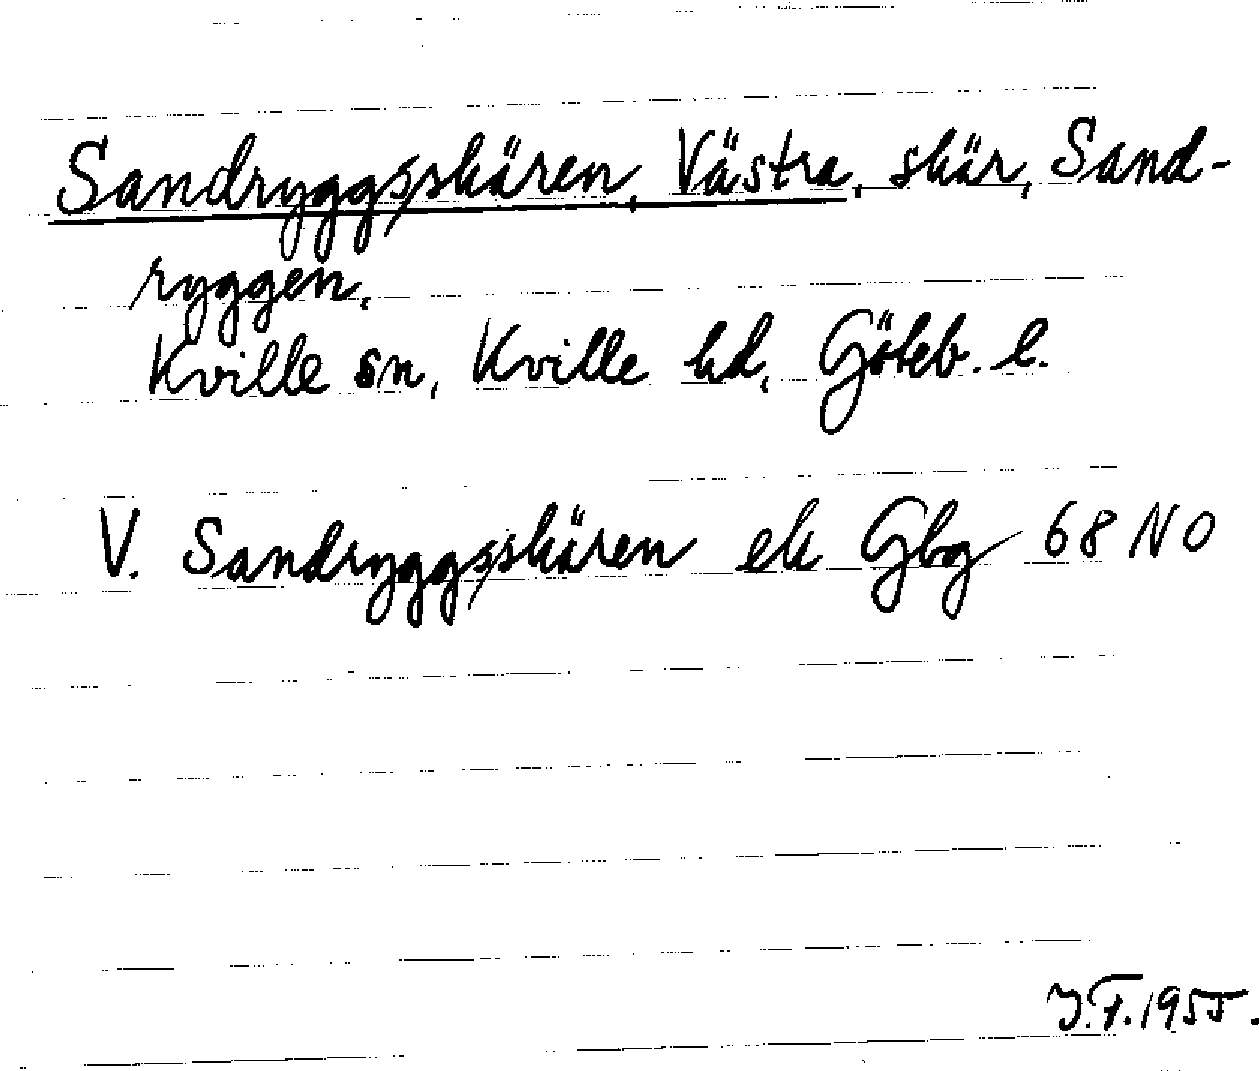 Sandryggsskären, Västra, skär, Sand-
ryggen,
Kville sn, Kville hd, Göteb. l.
V. Sandryggsskären ek Gbg 68 NO
J.F. 1955.